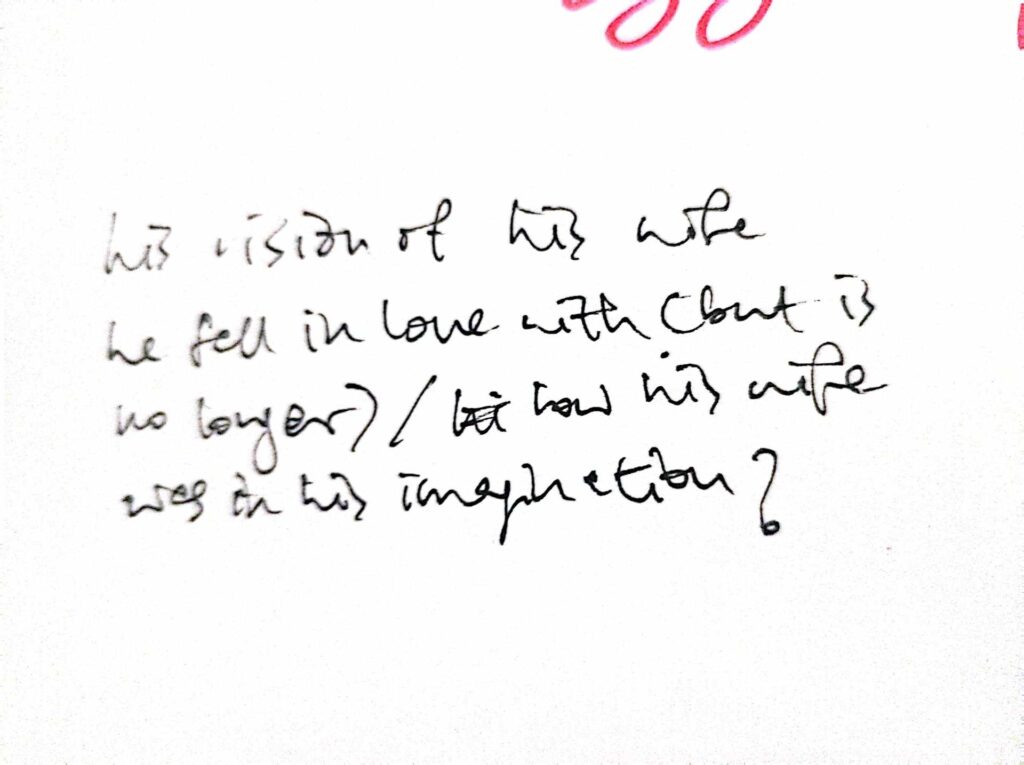 his vision of his wife
he fell in love with (but is
no longer) / how his wife
was in his imagination?